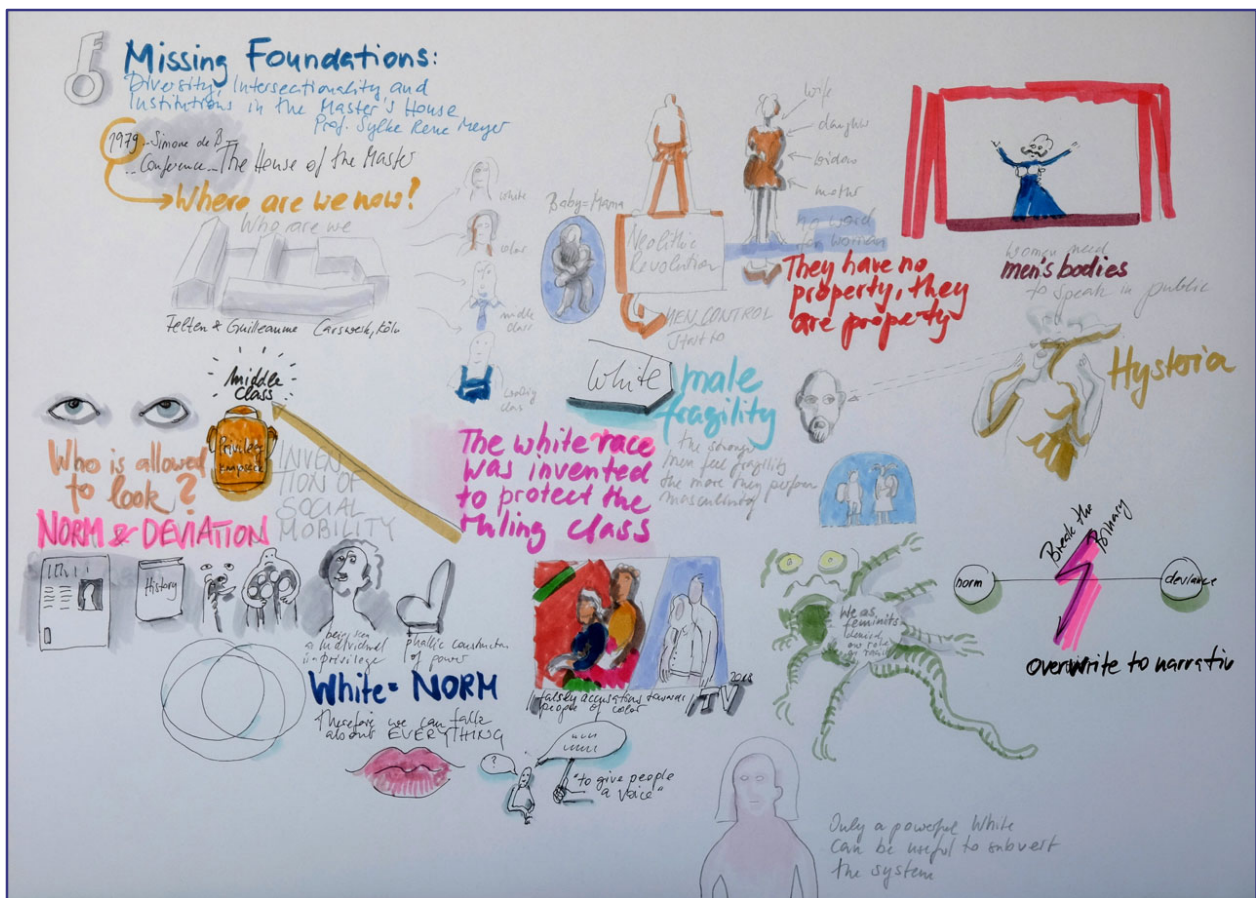 Missing Foundations:
Diversity, Intersectionality and
Institutions in the Master's House
Prof. Sylke Rene Meyer
1979 ... Simone de B
... Conference ... The House of the Master
Where are we now?
Who are we
Felten & Guilleaume Carswerk, Köln
white
color
middle
class
working
class
Baby = Mama
Neolithic
Revolution
MEN CONTROL
wife
daughter
mother
no word
for women
They have no
property, they
are property
women need
men's bodies
to speak in public
Hysteria
White male
fragility
the stronger
men feel fragility
the more they perform
masculinity
middle
class
Who is allowed
to look?
INVEN
TION OF
SOCIAL
MOBILITY
The white race
was invented
to protect the
ruling class
NORM & DEVIATION
History
being seen
as individual
is privilege
phallic construction
of power
White = NORM
Therefore we can talk
about EVERYTHING
?
"to give people
a voice"
falsly accusations towards
people of color
TV 2018
We as
feminists
denied
our role
Break the
Binary
norm
deviance
overwrite to narrativ
Only a powerful White
can be useful to subvert
the system